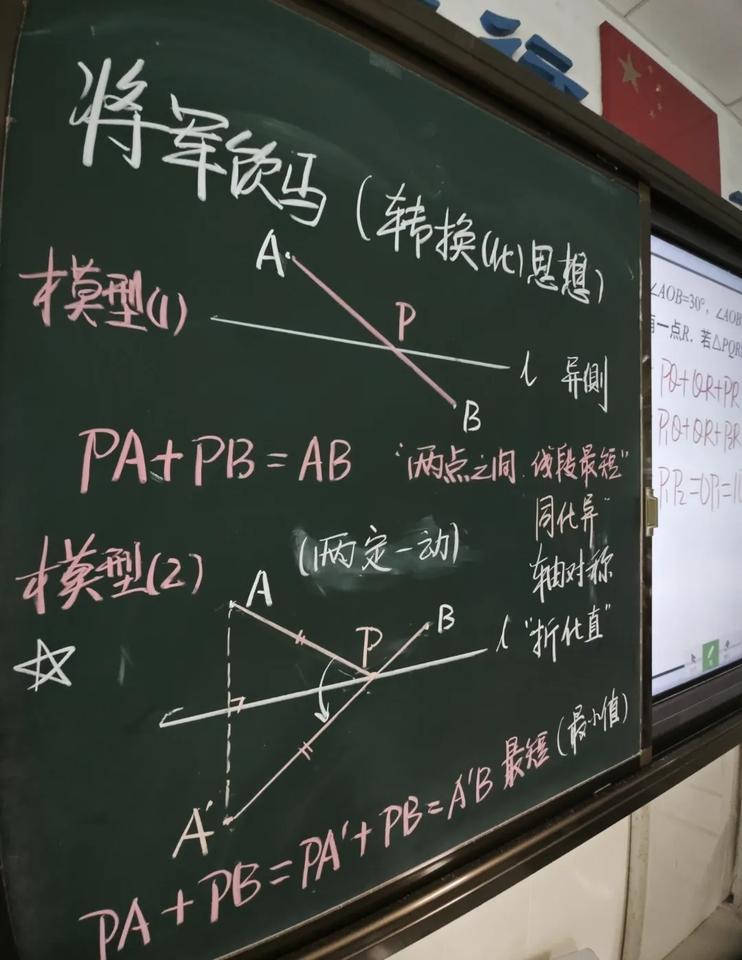 将军饮马（转换（化）思想）
模型(1)
A
P
l 异侧
B
PA+PB=AB "两点之间 线段最短"
同化异"
轴对称
"折化直"
模型(2) (两定一动)
A
P
B
l
A'
PA+PB=PA'+PB=A'B 最短(最小值)
∠AOB=30°，∠AOB
有一点R．若△PQR
PQ+QR+PR
P₁Q+QR+P₂R
P₁P₂=OP₁=10